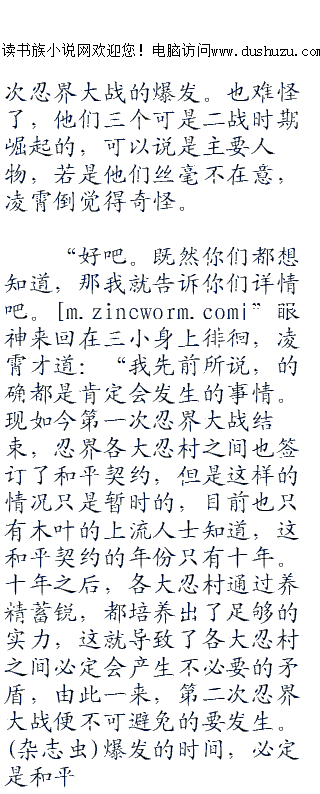 读书族小说网欢迎您！电脑访问www.dushuzu.com
次忍界大战的爆发。也难怪
了，他们三个可是二战时期
崛起的，可以说是主要人
物，若是他们丝毫不在意，
凌霄倒觉得奇怪。
“好吧。既然你们都想
知道，那我就告诉你们详情
吧。[m.zincworm.com|”眼
神来回在三小身上徘徊，凌
霄才道：“我先前所说，的
确都是肯定会发生的事情。
现如今第一次忍界大战结
束，忍界各大忍村之间也签
订了和平契约，但是这样的
情况只是暂时的，目前也只
有木叶的上流人士知道，这
和平契约的年份只有十年。
十年之后，各大忍村通过养
精蓄锐，都培养出了足够的
实力，这就导致了各大忍村
之间必定会产生不必要的矛
盾，由此一来，第二次忍界
大战便不可避免的要发生。
(杂志虫)爆发的时间，必定
是和平